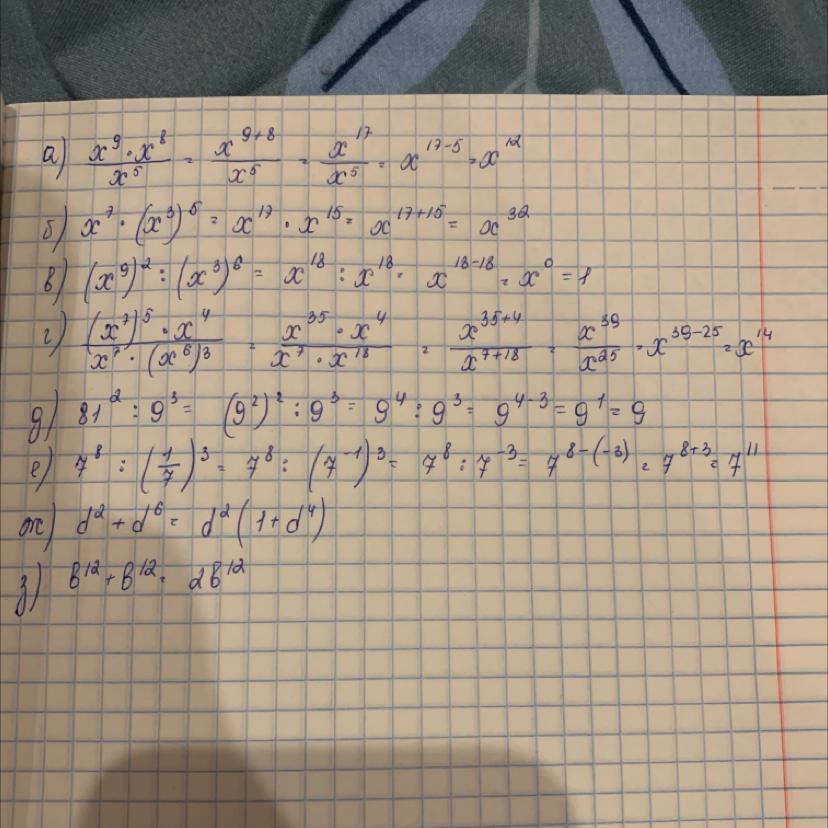 а) x⁹·x⁸/x⁵ = x⁹⁺⁸/x⁵ = x¹⁷/x⁵ = x¹⁷⁻⁵ = x¹²
б) x⁷·(x³)⁵ = x¹⁷·x¹⁵ = x¹⁷⁺¹⁵ = x³²
в) (x⁹)² : (x³)⁶ = x¹⁸ : x¹⁸ = x¹⁸⁻¹⁸ = x⁰ = 1
г) (x⁷)⁵·x⁴/x⁷·(x⁶)³ = x³⁵·x⁴/x⁷·x¹⁸ = x³⁵⁺⁴/x⁷⁺¹⁸ = x³⁹/x²⁵ = x³⁹⁻²⁵ = x¹⁴
д) 81² : 9³ = (9²)² : 9³ = 9⁴ : 9³ = 9⁴⁻³ = 9¹ = 9
е) 7⁸ : (1/7)³ = 7⁸ : (7⁻¹)³ = 7⁸ : 7⁻³ = 7⁸⁻⁽⁻³⁾ = 7⁸⁺³ = 7¹¹
ж) d² + d⁶ = d²(1 + d⁴)
з) в¹² + в¹² = 2в¹²